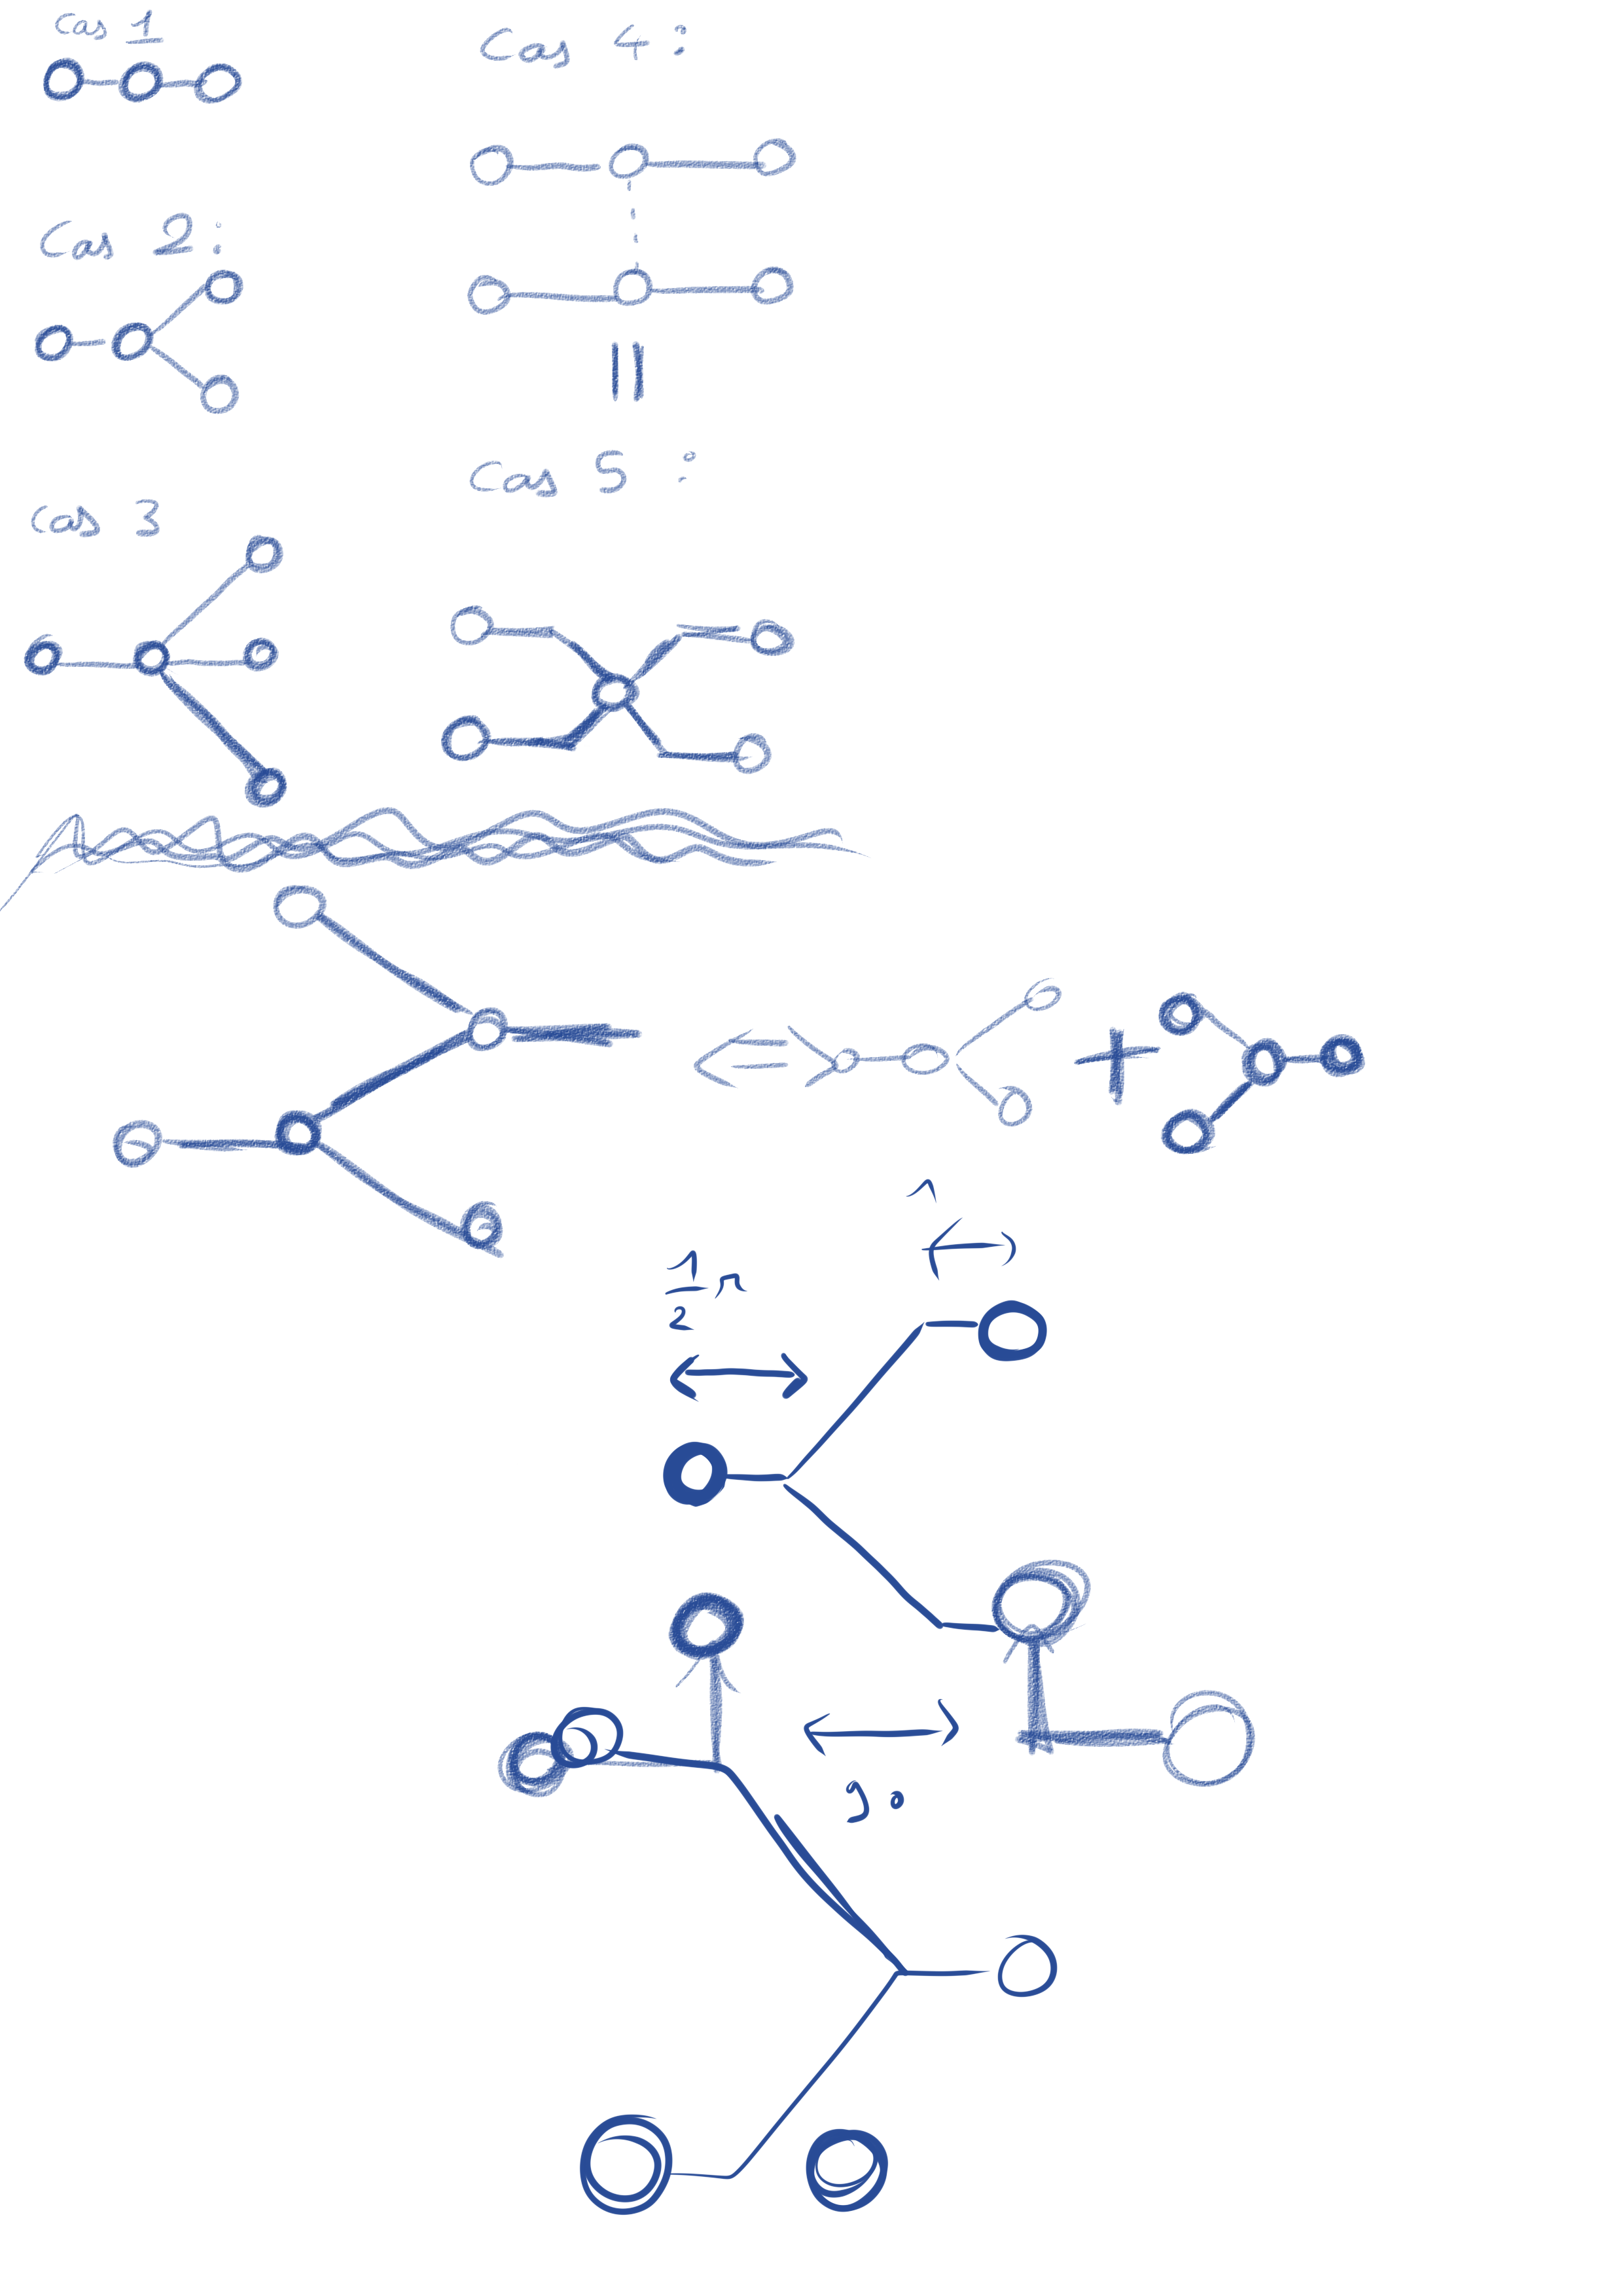 Cas 1
Cas 4 :
Cas 2 :
Cas 5 :
Cas 3
+
1
2